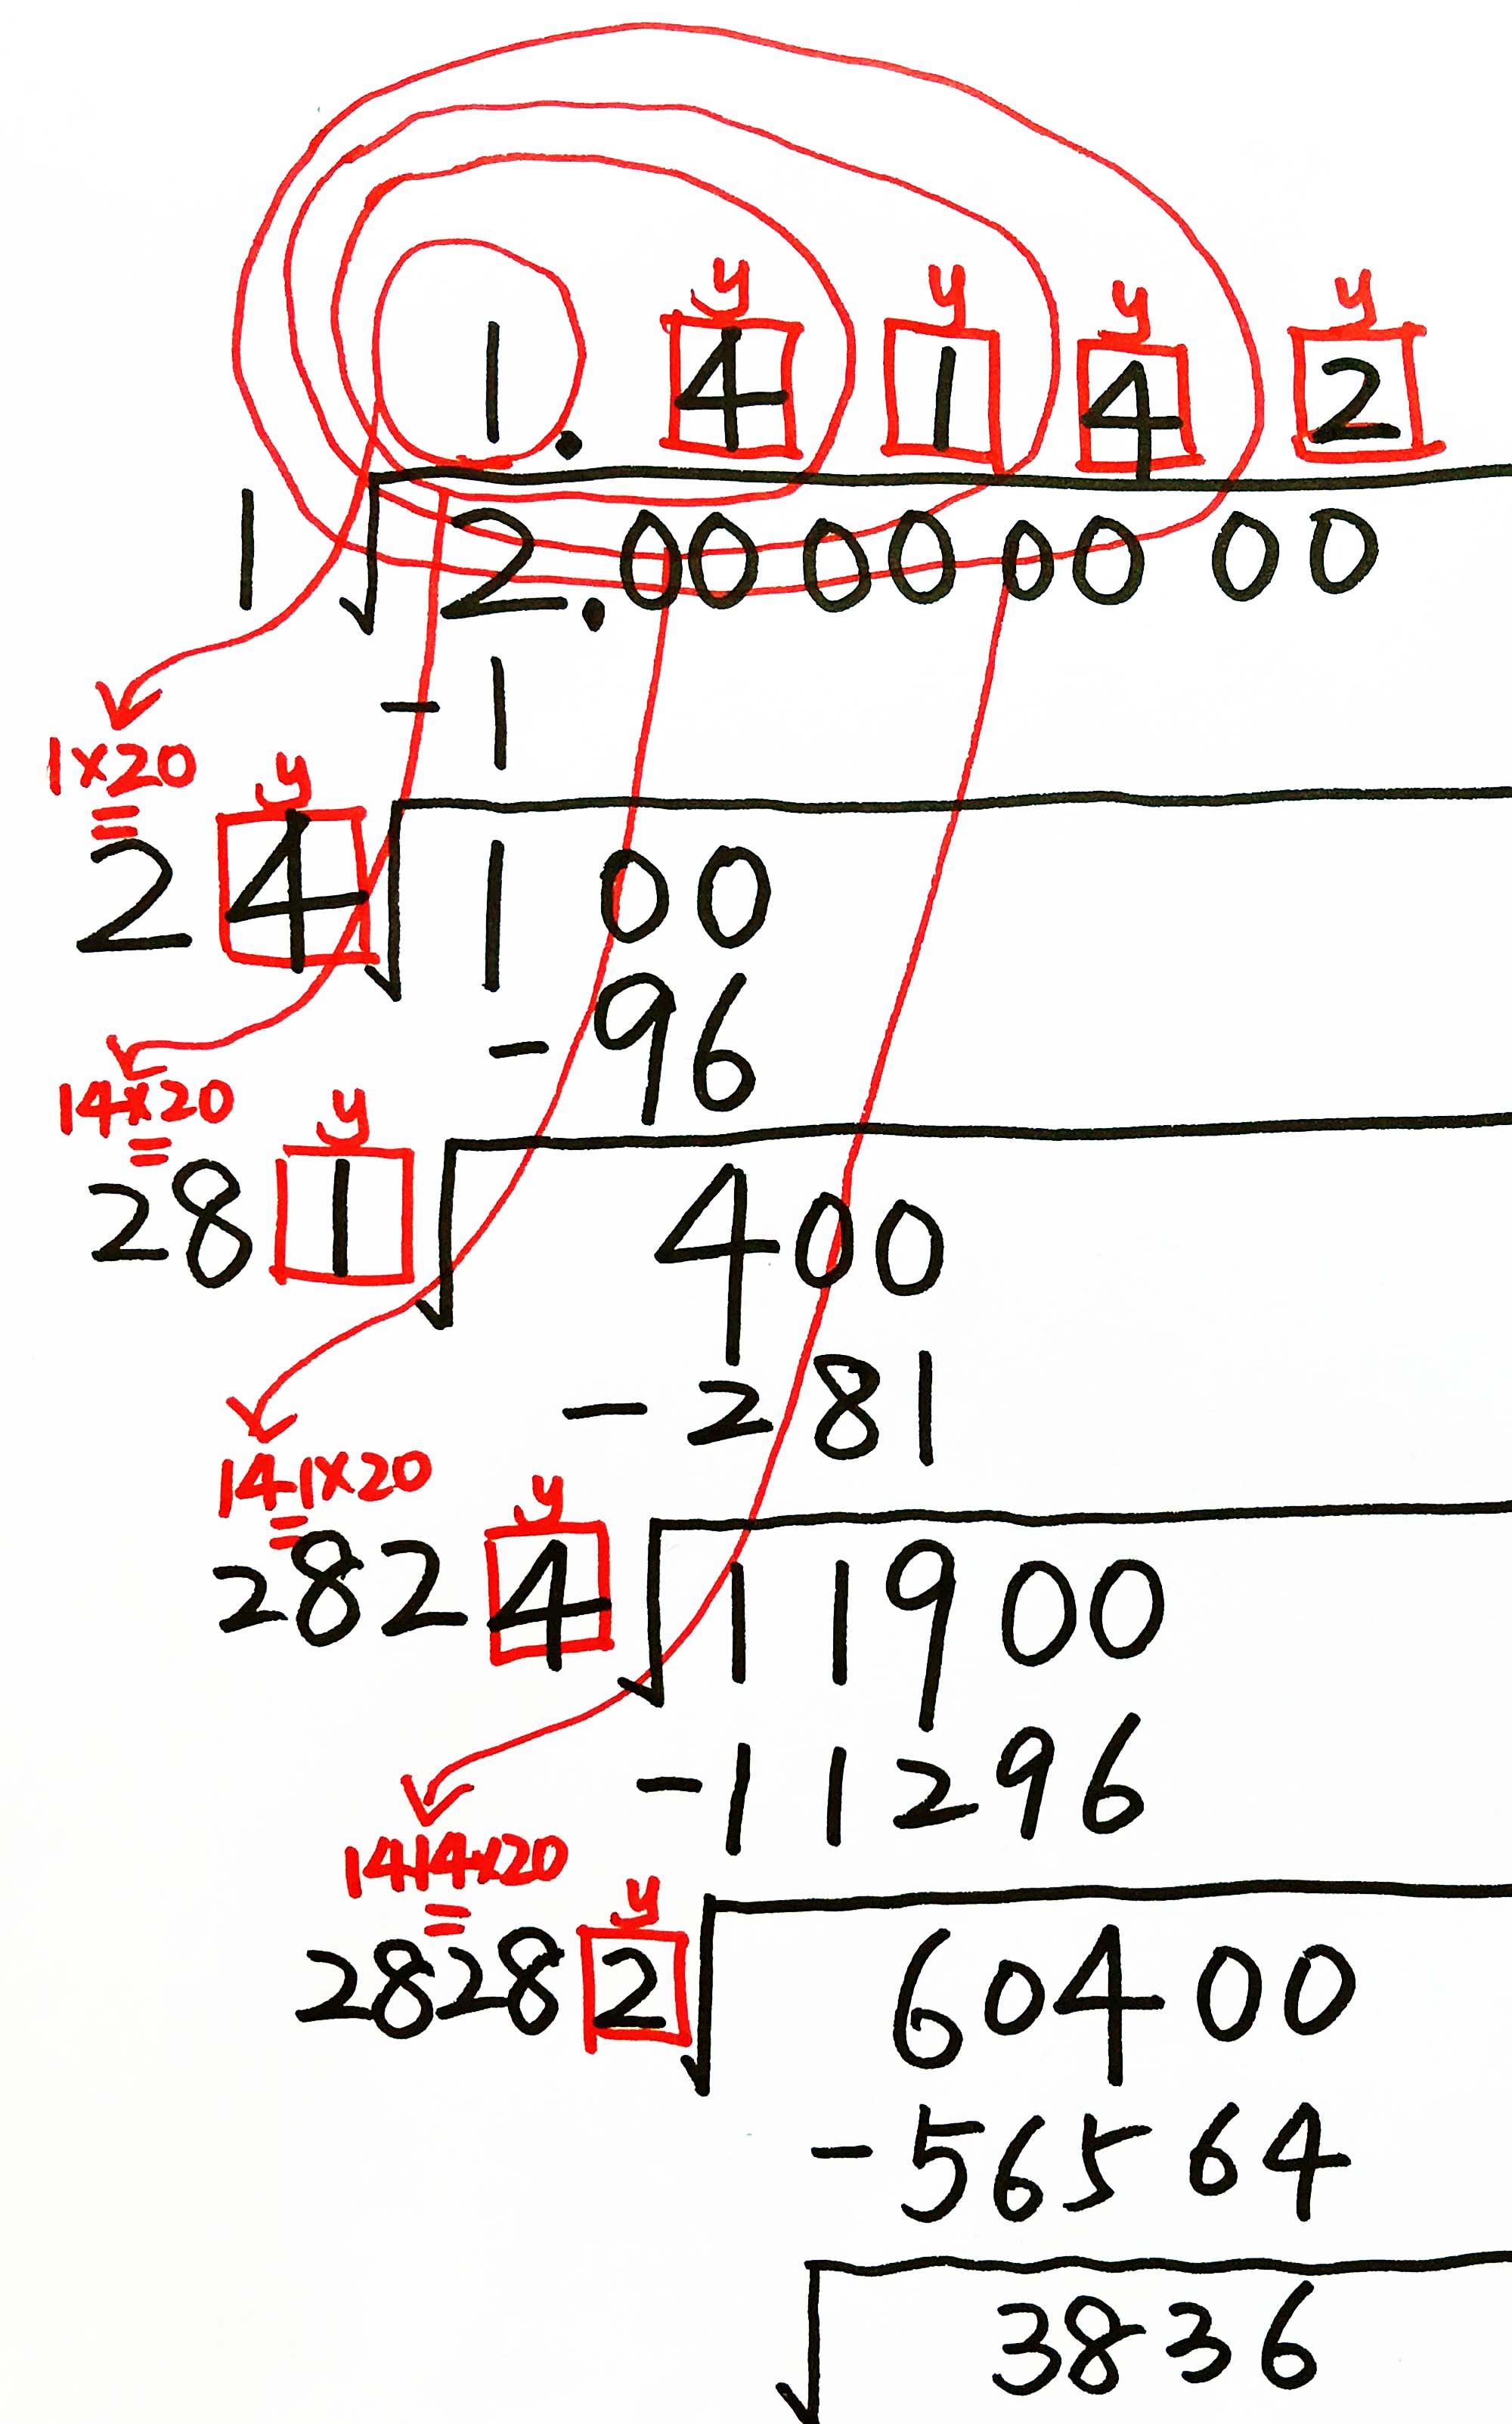 y y y y
1. 4 1 4 2
1 √2.00 00 00 00
-1
1×20
=
y
2 4 √1 00
-96
14×20
=
y
28 1 √400
-281
141×20
=
y
282 4 √11900
-11296
1414×20
=
y
2828 2 √60400
-56564
√3836